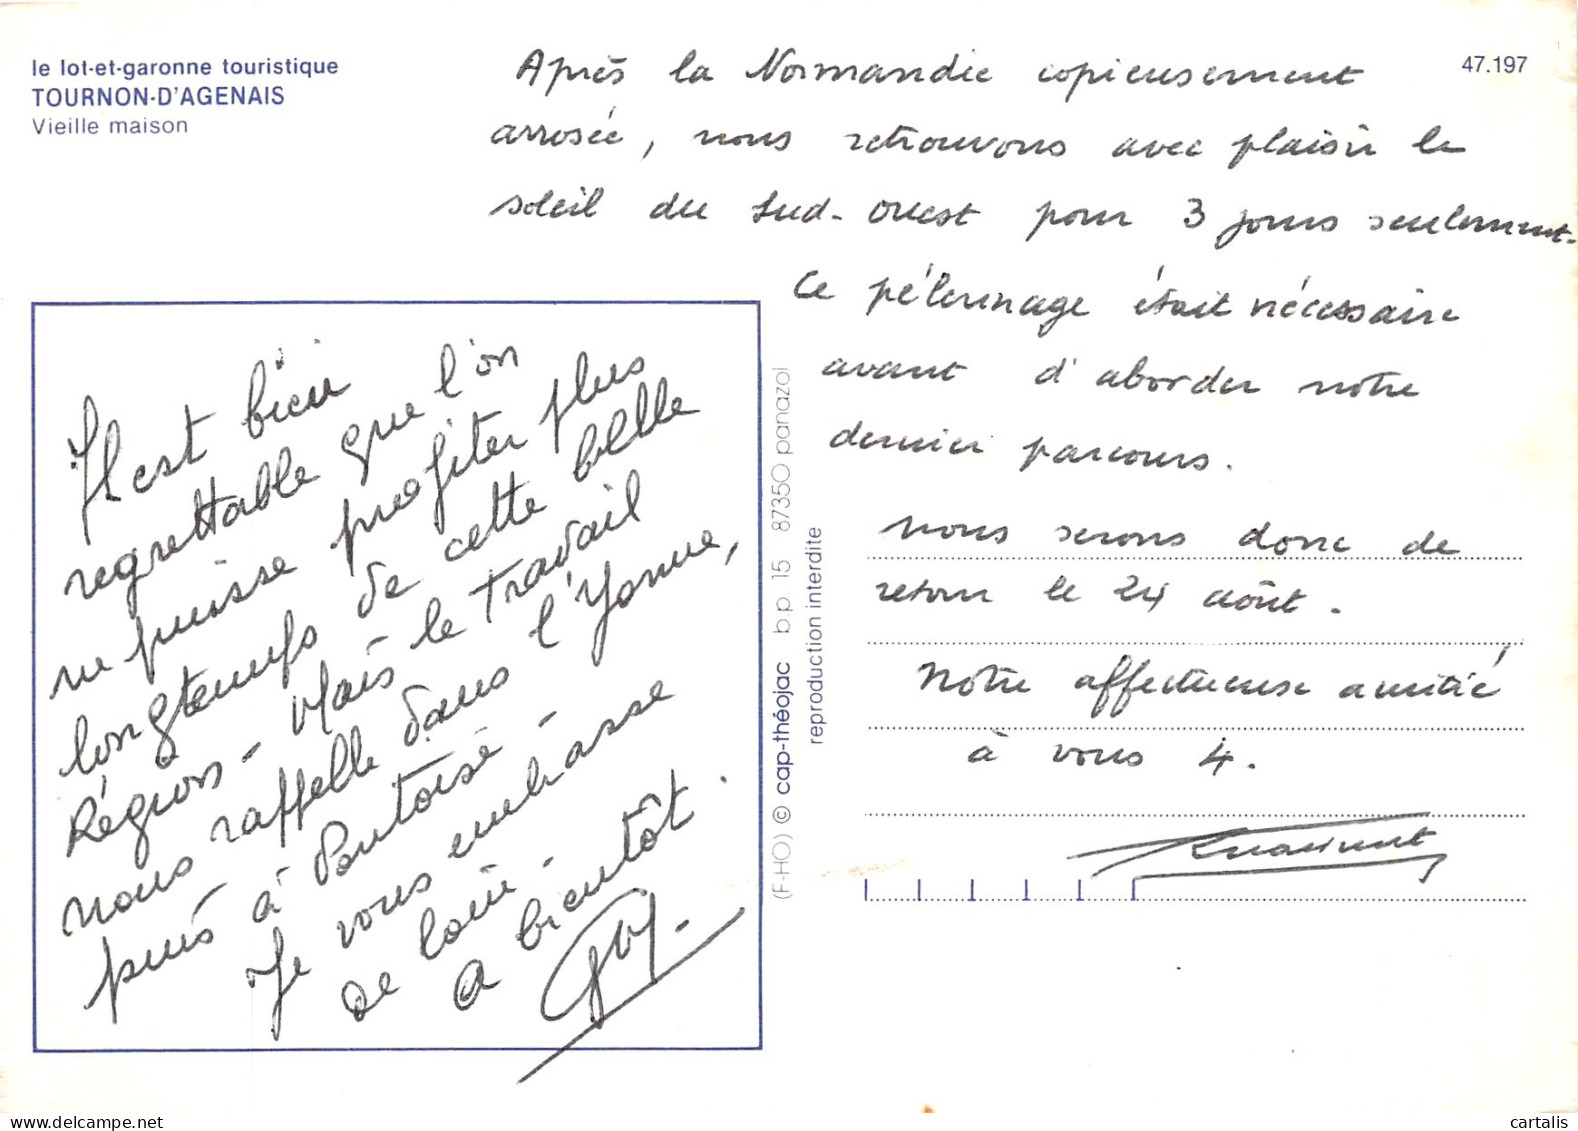 le lot-et-garonne touristique
TOURNON-D'AGENAIS
Vieille maison
47.197
Après la Normandie copieusement
arrosée, nous retrouvons avec plaisir le
soleil du Sud-Ouest pour 3 jours seulement.
Ce pélerinage était nécessaire
avant d'aborder notre
dernier parcours.
Nous serons donc de
retour le 24 août.
Notre affectueuse amitié
à vous 4.
Il est bien
regrettable que l'on
ne puisse profiter plus
longtemps de cette belle
Région - Mais le travail
nous rappelle dans l'Yonne,
puis à Pontoise -
Je vous embrasse
de loin.
A bientôt.
(F-HO) © cap-théojac bp 15 87350 panazol
reproduction interdite
cartalis